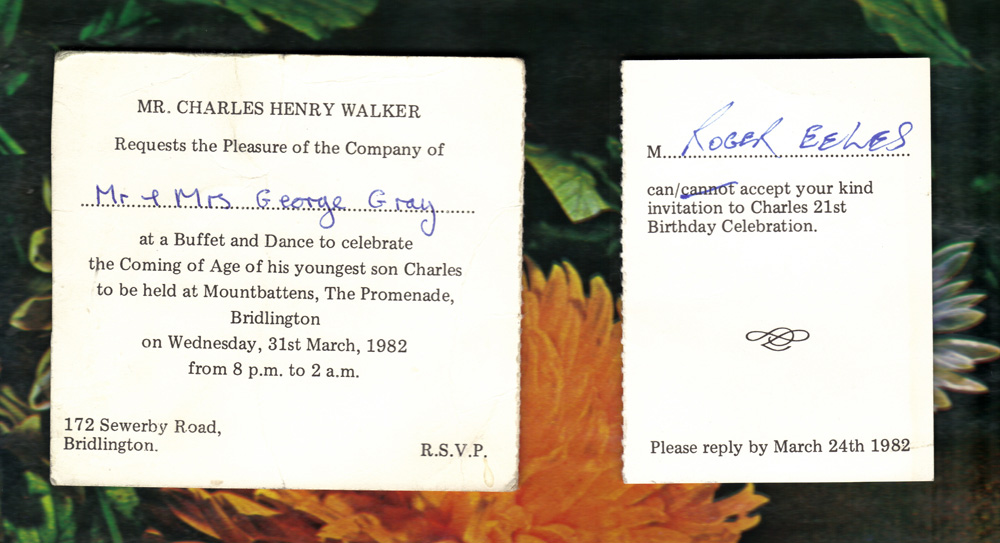 MR. CHARLES HENRY WALKER
Requests the Pleasure of the Company of
Mr & Mrs George Gray
at a Buffet and Dance to celebrate
the Coming of Age of his youngest son Charles
to be held at Mountbattens, The Promenade,
Bridlington
on Wednesday, 31st March, 1982
from 8 p.m. to 2 a.m.
172 Sewerby Road,
Bridlington.
R.S.V.P.
M. ROGER EELES
can/cannot accept your kind
invitation to Charles 21st
Birthday Celebration.
Please reply by March 24th 1982